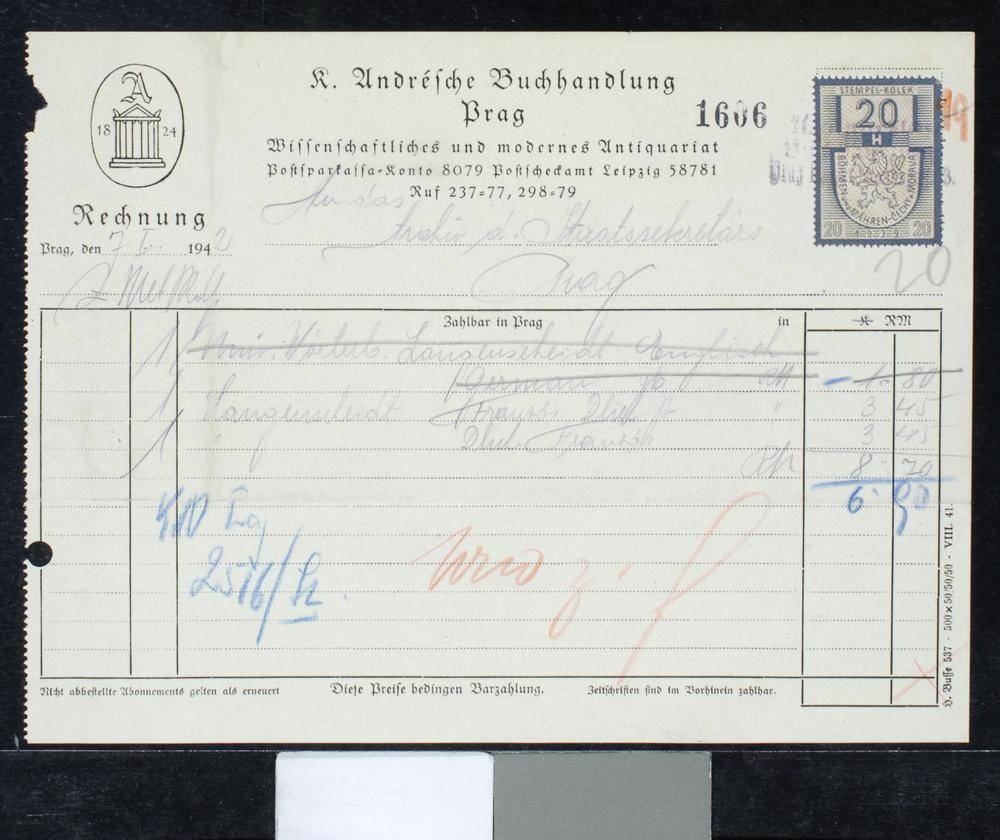 A
18 24
K. Andrésche Buchhandlung
Prag
1606
Wissenschaftliches und modernes Antiquariat
Postsparkassa-Konto 8079 Postscheckamt Leipzig 58781
Ruf 237-77, 298-79
STEMPEL-KOLEK
20
H
BÖHMEN u. MÄHREN-ČECHY a MORAVA
20 20
1-9-3-9
19
Rechnung
An das
Archiv d. Staatssekretärs
Prag, den 7 I. 1942
Prag
20
Zahlbar in Prag in K RM
1 Wörterb. Langenscheidt Englisch
German 1. 80
1 Langenscheidt Französ. Dtsch. " 3 45
1 " Dtsch. Französ. 3 45
RM 8. 70
6. 90
2516/
Nicht abbestellte Abonnements gelten als erneuert
Diese Preise bedingen Barzahlung.
Zeitschriften sind im Vorhinein zahlbar.
H. Busse 537 - 500×50/50/50 - VIII. 41.